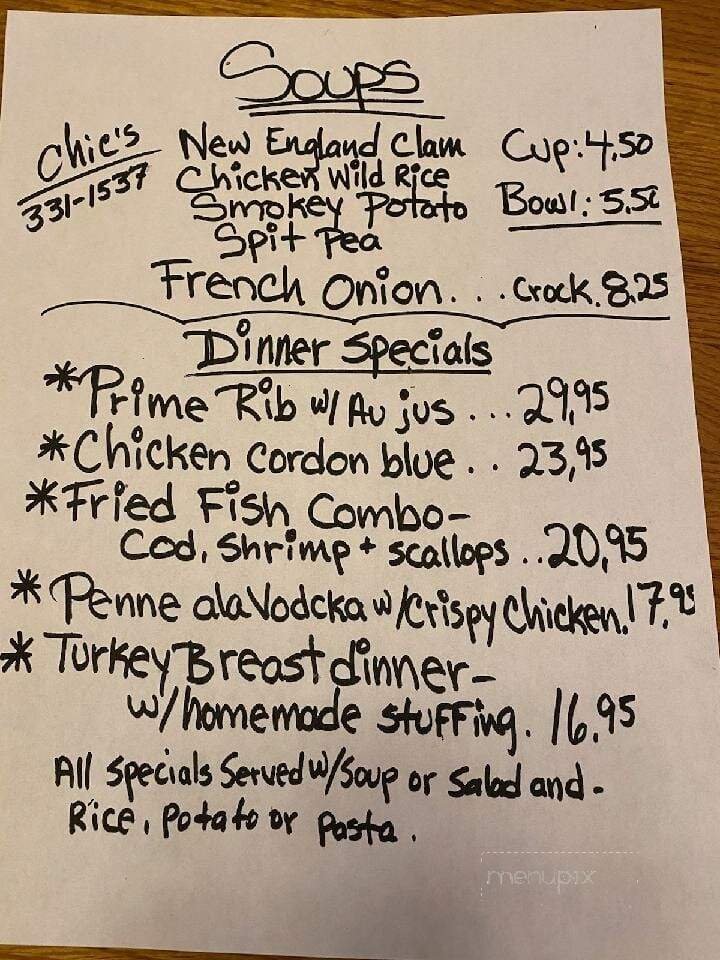 Soups
Chic's
331-1537
New England Clam
Chicken Wild Rice
Smokey Potato
Spit Pea
Cup: 4.50
Bowl: 5.50
French Onion... Crock. 8.25
Dinner Specials
*Prime Rib w/ Au jus... 29,95
*Chicken Cordon blue.. 23,95
*Fried Fish Combo-
Cod, Shrimp + scallops..20,95
*Penne ala Vodcka w/Crispy Chicken.17.95
*Turkey Breast dinner-
w/homemade stuffing. 16,95
All Specials Served w/Soup or Salad and-
Rice, Potato or Pasta.
menupix